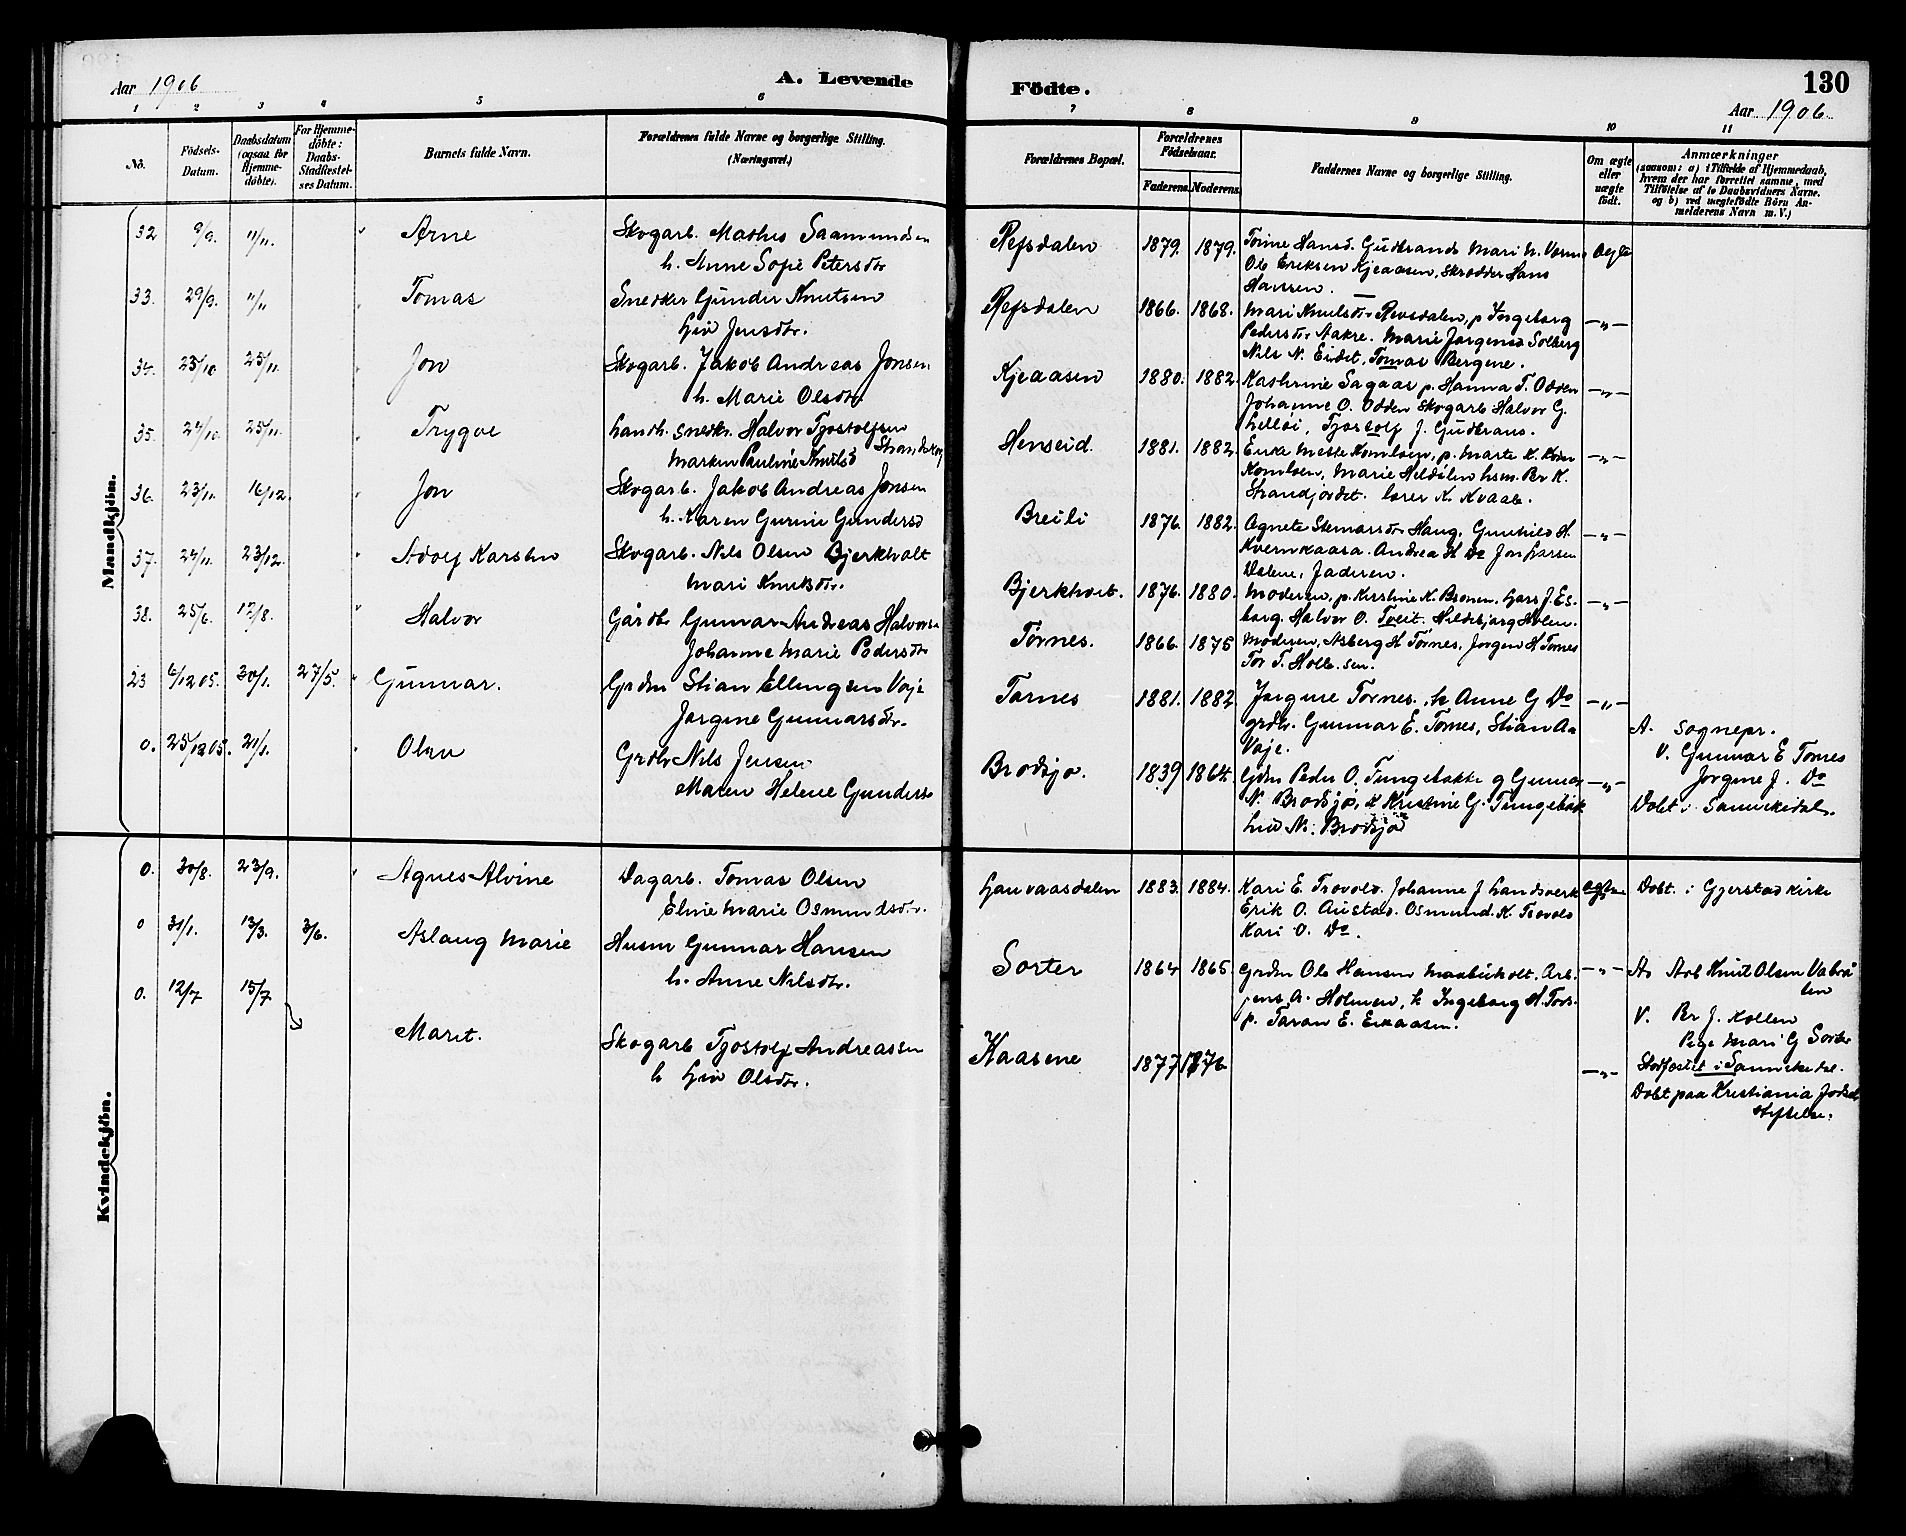 Aar 1906
A. Levende
Födte.
130
Aar 1906
1 2 3 4 5 6 7 8 9 10 11
No.
Födsels-
Datum.
Daabsdatum
(ogsaa for
Hjemme-
döbte).
For Hjemme-
döbte:
Daabs-
Stadfæstel-
ses Datum.
Barnets fulde Navn.
Forældrenes fulde Navne og borgerlige Stilling.
(Næringsvei.)
Forældrenes Bopæl.
Forældrenes
Födselsaar.
Faderens. Moderens.
Faddernes Navne og borgerlige Stilling.
Om ægte
eller
uægte
födt.
Anmærkninger
(saasom: a) i Tilfælde af Hjemmedaab,
hvem der har forrettet samme, med
Tilföielse af to Daabsvidners Navne.
og b) ved uægtefödte Börn An-
melderens Navn m. V.)
Mandkjön.
32 9/9. 11/11. Arne
Skogarb. Mathis Saamundsen
h. Anne Sofie Petersdtr
Refsdalen 1879. 1879.
Tomine Hansd. Gudbrands Mari N.
Ole Eriksen Kjeaasen, Skrædder Hans
Hansen.
Aegte
33. 29/9. 11/11 Tomas
Snedker Gunder Knutsen
Liv Jensdtr.
Refsdalen 1866. 1868.
Mari Knutsdtr Revsdalen, p Ingeborg
Pedersdtr Aakre. Marie Jørgensd Solberg
Nils N. Eidet, Tomas Bergene.
—„—
34. 23/10 25/11. Jon
Skogarb. Jakob Andreas Jonsen
h. Marie Olsdtr
Kjeaasen 1880. 1882
Kathrine Sagaas p. Hanna T. Odden
Johanne O. Odden Skogarb Halvor G.
Lilleöi, Tjostolf J. Gudbrans.
—„—
35. 24/10. 25/11. Trygve
Landh. Snedkr. Halvor Tjostolfsen
Strandskog
Maren Pauline Knutsd
Henseid. 1881. 1882
Mette Komlsen, p. Marte K.
Komlsen, Marie Heldølen hsm. Br K.
Strandjordet. lærer K. Kvaale.
—„—
36. 23/11. 16/12. Jon
Skogarb. Jakob Andreas Jonsen
h. Karen Gurine Gundersd
Breili 1876. 1882.
Agnete Stenarsdtr Haug, Gunhild H.
Kvernkaasa. Andrea H Do Jon Larsen
Dalene, Faderen.
—„—
37. 24/11. 23/12. Adolf Karsten
Skogarb. Nils Olsen Bjerkholt
Mari Knutsdtr.
Bjerkholt. 1876. 1880.
Moderen, p. Kirstine K. Bronen. Lars J. Es-
borg. Halvor O. Tveit. Hildebjørg Holen.
—„—
38. 25/6. 12/8. Halvor
Gårdbr Gunnar Andreas Halvorsen
Johanne Marie Pedersdtr
Tørnes. 1866. 1875
Moderen, Asberg H Tørnes, Jørgen H Tørnes
Tor T. Holte sen.
23 6/12 05. 30/1. 27/5. Gunnar.
Grdbr Stian Ellingsen Vaje
Jørgine Gunnarsdtr.
Tørnes 1881. 1882
Jørgine Tørnes. k Anne G Do
grdbr. Gunnar E. Tornes, Stian A.
Vaje.
—„—
A. Sognepr.
V. Gunnar E Tornes
Jørgine J. Do
0. 25/12 05. 21/1. Olav
Grdbr Nils Jensen
Maren Helene Gundersd
Brødsjø. 1839 1864.
Grdbr Peder O. Tungebakke og Gunnar
N. Brødsjø, k Kristine G. Tungebak
Liv N. Brødsjø
—„—
Døbt i Sannikedal.
Kvindekjön.
0. 30/8. 23/9. Agnes Alvine
Dagarb. Tomas Olsen
Eline Marie Osmundsdtr.
Lauvaasdalen 1883. 1884.
Kari E. Trovold. Johanne J Landsverk
Erik O. Austad. Osmund K. Trovold
Kari O. Do.
ægte
Døbt. i Gjerstad kirke
0 31/1. 13/3. 3/6. Aslaug Marie
Husm Gunnar Hansen
h. Anne Nilsdtr.
Sorter 1864 1865.
Grdbr Ole Hansen Maabuholt. Arb.
Jens A. Holmen, k Ingeborg H. Tors-
p. Taran E. Eikaasen.
—„—
A. Arb Knut Olsen Vabrø
len
V. Br J. Kollen
Pige Mari G Sorter
Stadfæstet i Sannikedal.
0. 12/7 15/7 Marit.
Skogarb Tjostolf Andreassen
h Liv Olsdtr.
Kaasene 1877 1876
—„—
Døbt paa Kristiania Fødsels
stiftelse.